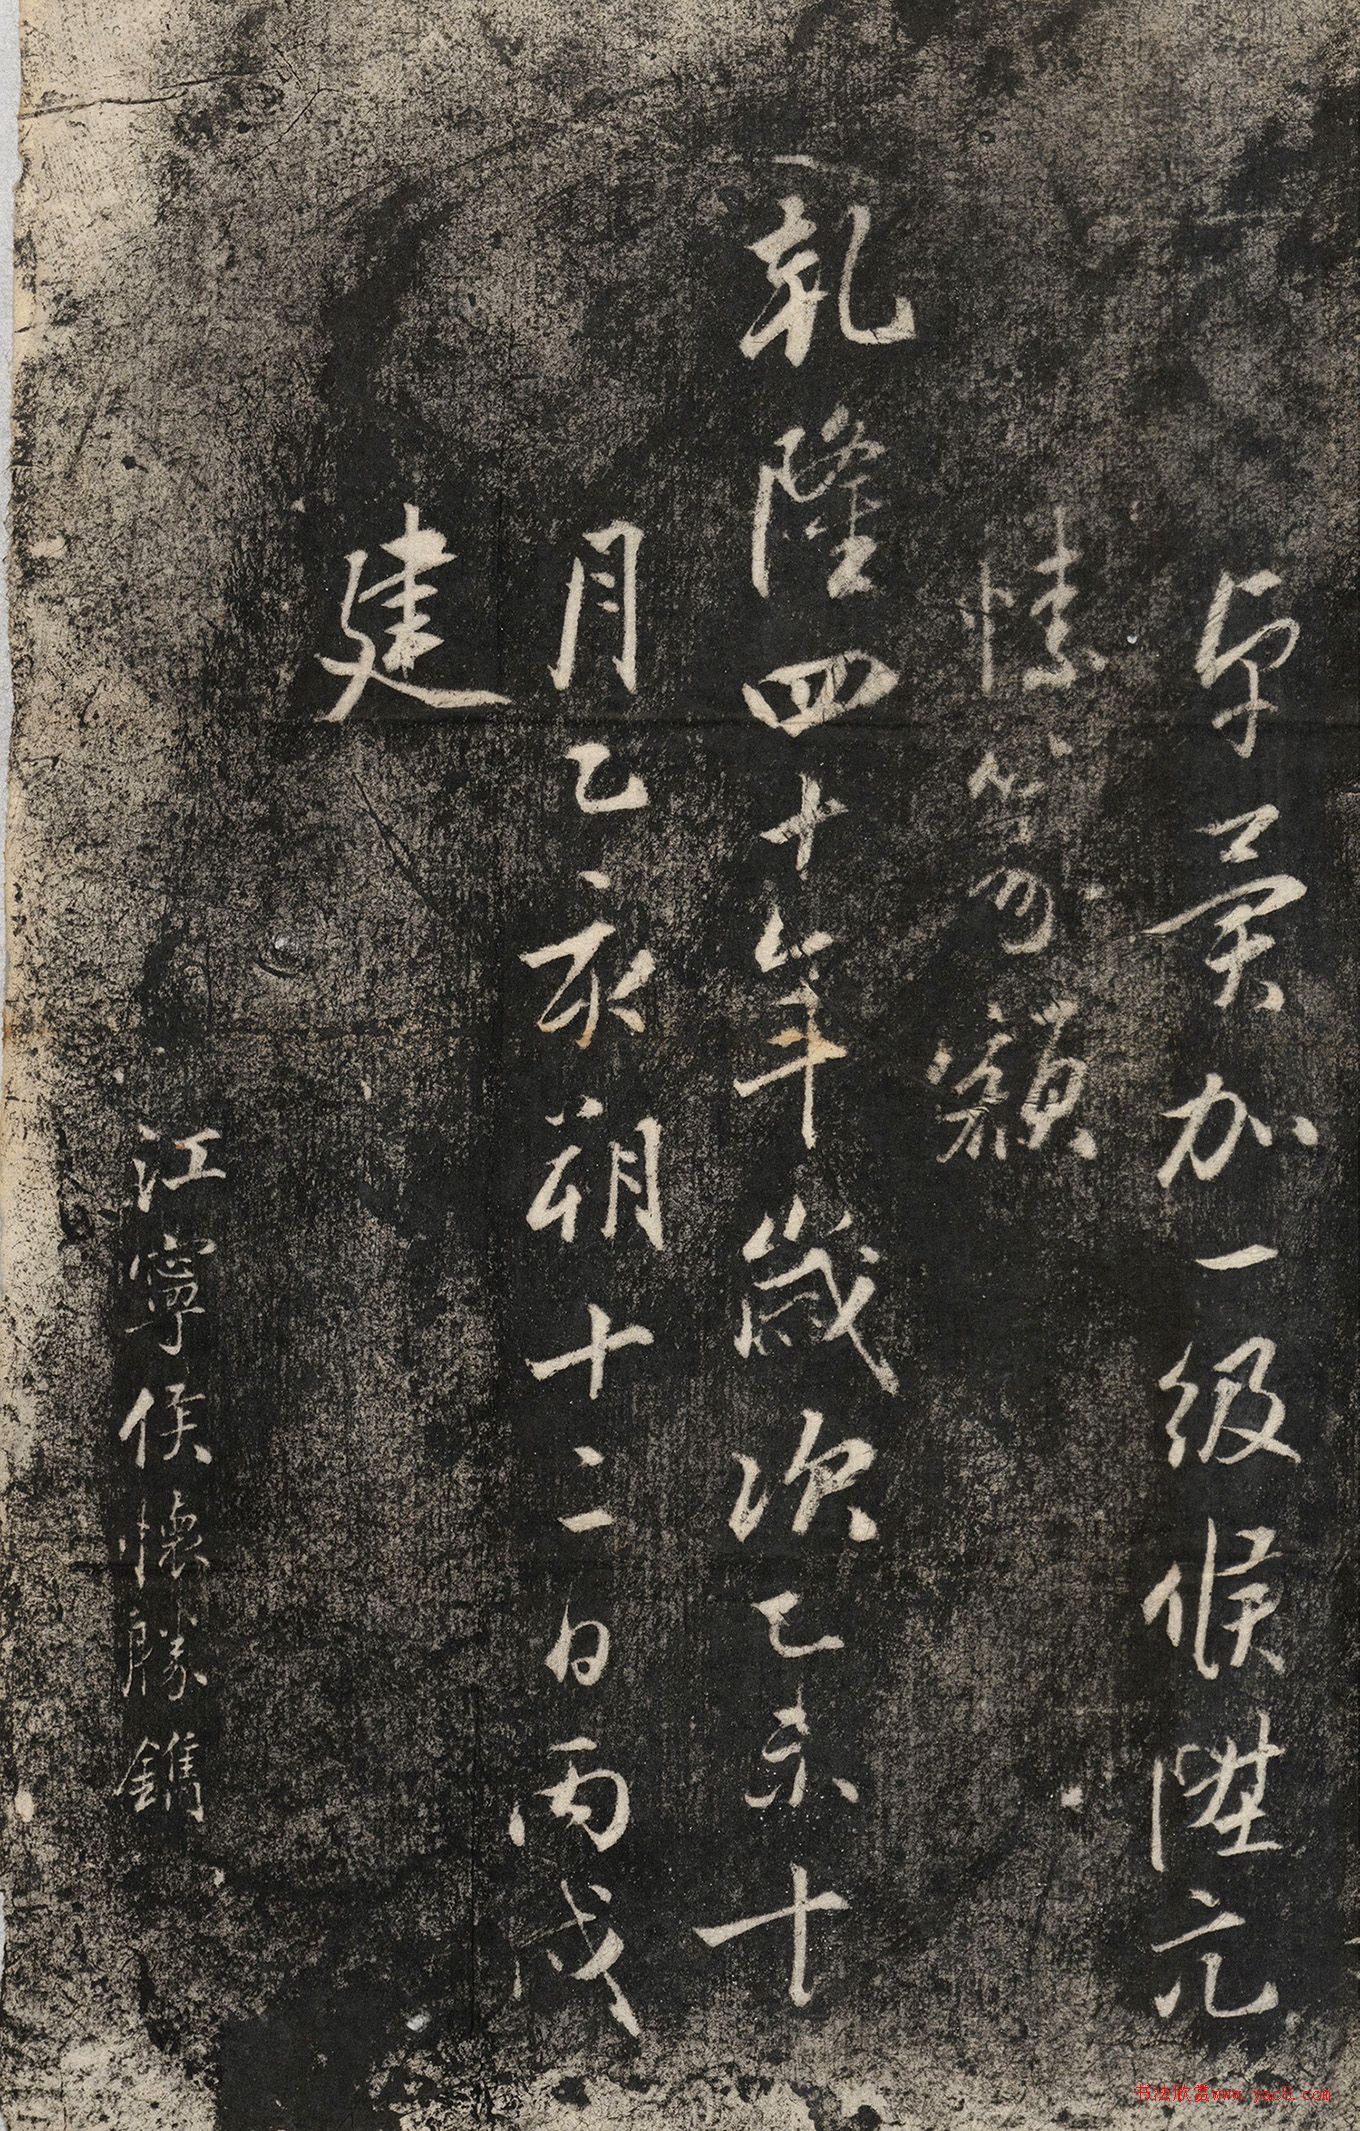 卓異加一級候陞元
愫篆額
乹隆四十年歲次乙未十
月乙亥朔十二日丙戌
建
江寧侯懷勝鐫
书法欣赏www.yac8.com